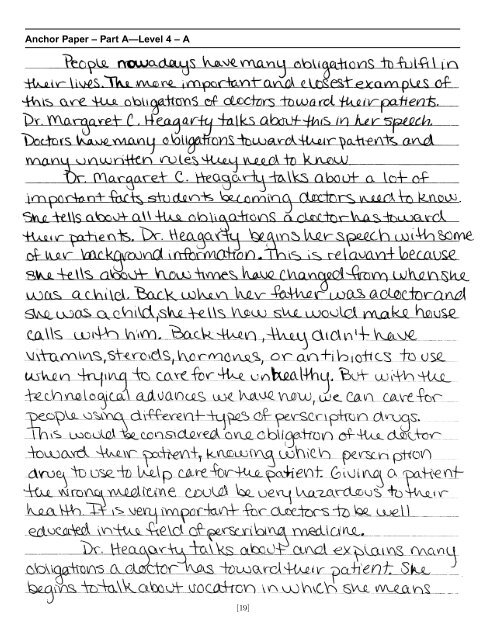 Anchor Paper – Part A—Level 4 – A
People nowadays have many obligations to fulfil in
their lives. The more important and closest examples of
this are the obligations of doctors toward their patients.
Dr. Margaret C. Heagarty talks about this in her speech.
Doctors have many obligations toward their patients and
many unwritten rules they need to know
Dr. Margaret C. Heagarty talks about a lot of
important facts students becoming doctors need to know.
She tells about all the obligations a doctor has toward
their patients. Dr. Heagarty begins her speech with some
of her background information. This is relavant because
she tells about how times have changed from when she
was a child. Back when her father was a doctor and
she was a child, she tells how she would make house
calls with him. Back then, they didn't have
vitamins, steroids, hormones, or antibiotics to use
when trying to care for the unhealthy. But with the
technological advances we have now, we can care for
people using different types of perscription drugs.
This would be considered one obligation of the doctor
toward their patient, knowing which perscription
drug to use to help care for the patient. Giving a patient
the wrong medicine could be very hazardous to their
health. It is very important for doctors to be well
educated in the field of perscribing medicine.
Dr. Heagarty talks about and explains many
obligations a doctor has toward their patient. She
begins to talk about vocation in which she means
[19]